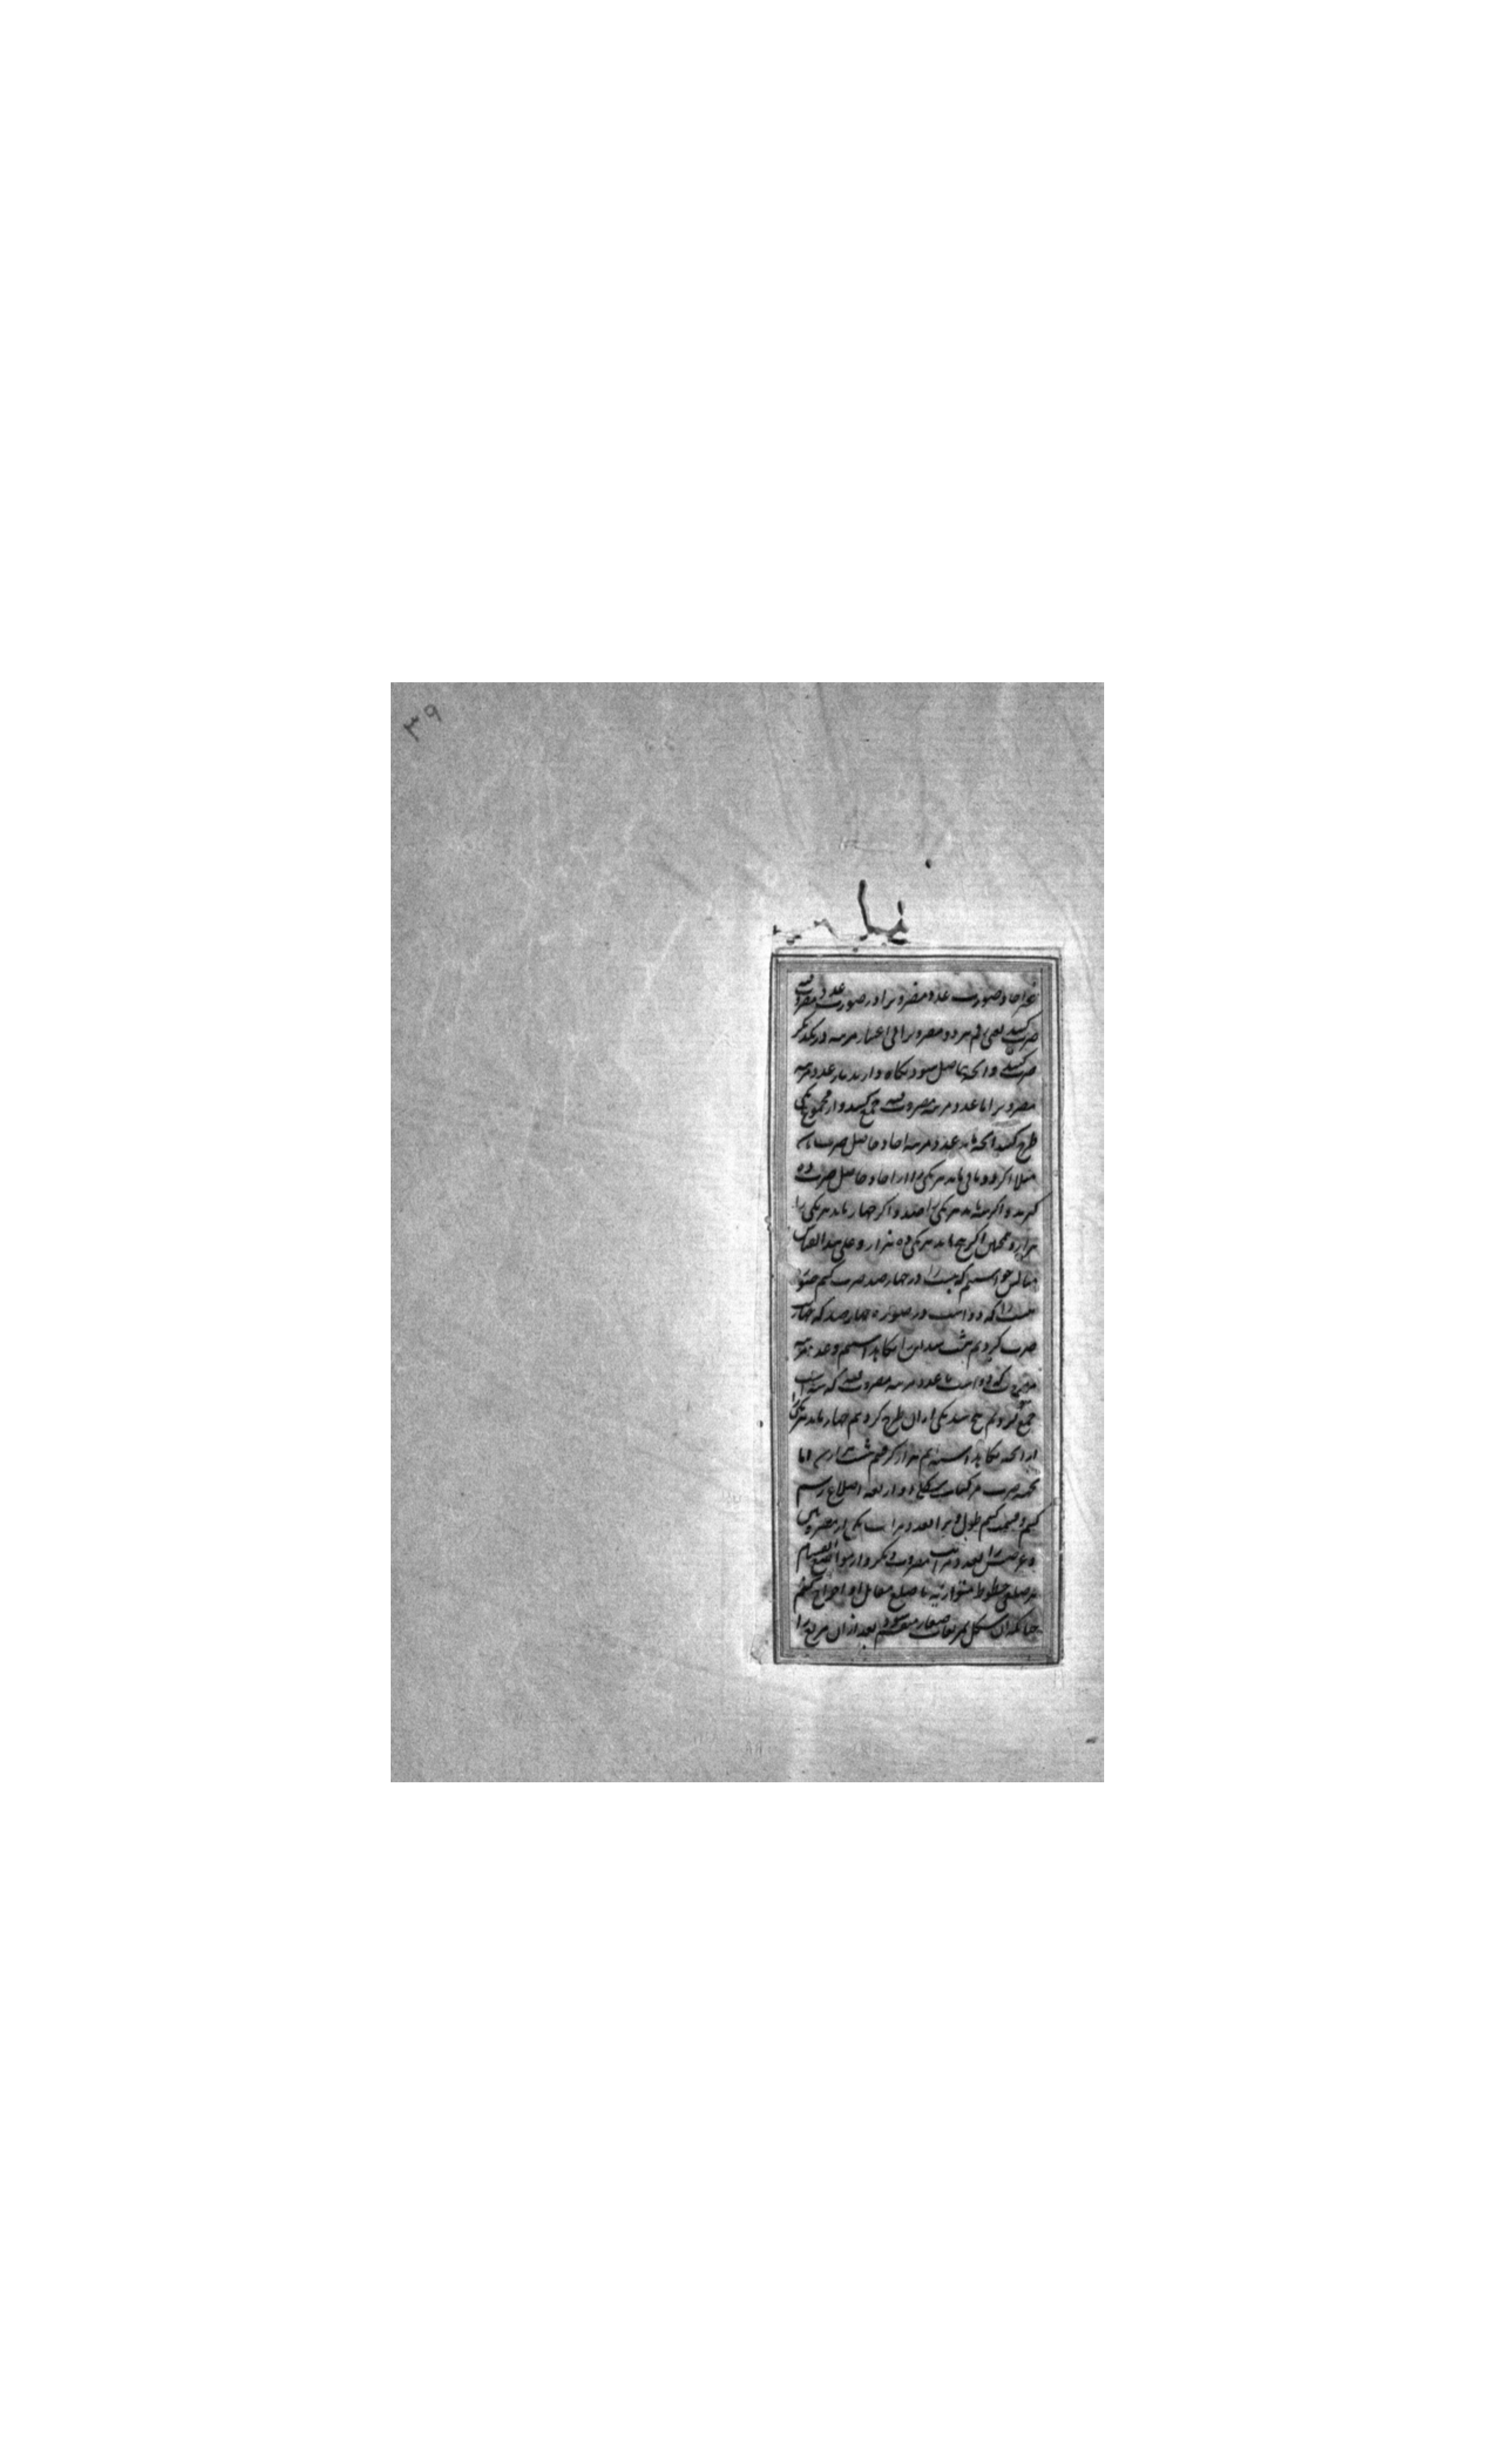 ٣٩
غیر احاد صورت عدد مضروب را در صورت عدد مضروب فیه
ضرب کنند یعنی رقم هر دو مضروب را بی اعتبار مرتبه در یکدیگر
ضرب کنند و آنچه حاصل شود نگاه دارند بار عدد مرتبه
مضروب را با عدد مرتبه مضروب فیه جمع کنند و از مجموع یکی
طرح کنند آنچه ماند عدد مرتبه احاد حاصل ضرب باشد
مثلا اگر دو باقی ماند هر یکی را از احاد حاصل ضرب ده
گیرند و اگر سه ماند هر یکی را صد و اگر چهار ماند هر یکی را
هزار و همچنین اگر پنج ماند هر یکی ده هزار و علی هذا القیاس
مثالش خواستیم که بیست را در چهار صد ضرب کنیم صورت
بیست را که دو است در صورة چهار صد که چهار است
ضرب کردیم هشت شد این را نگاه داشتیم و عدد مرتبه
مضروب که دو است با عدد مرتبه مضروب فیه که سه است
جمع کردیم پنج شد یکی از ان طرح کردیم چهار ماند هر یکی را
از آنچه نگاه داشتیم هزار گرفتیم هشت هزار شد اما
جهة ضرب مرکبات شکلی ذو اربعه اضلاع رسم
کنیم و قسمت کنیم طول ویرا بعدد مراتب یکی از مضروبین
و عرضش را بعدد مراتب مضروب دیگر و از مواضع انقسام
هر ضلعی خطوط متوازیه تا ضلع مقابل او اخراج کنیم
چنانکه ان شکل بمربعات صغار منقسم شود بعد از ان هر مربع را